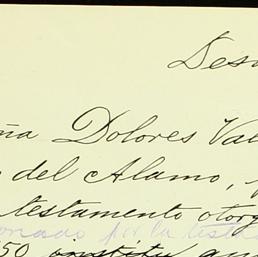 Des
ña Dolores Val
del Alamo, y
testamento otorg
onado por la testa
50 instituy